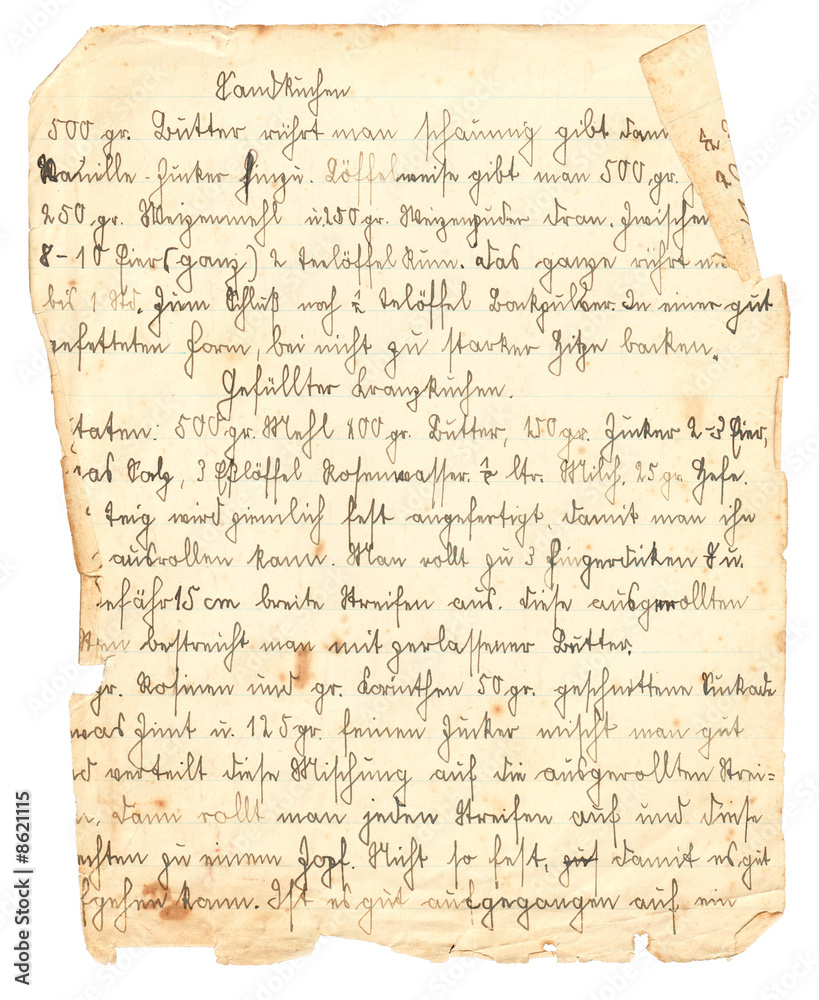 Sandkuchen
500 gr. Butter rührt man schaumig gibt dann
Vanille-Zucker hinzu. Löffelweise gibt man 500 gr.
250 gr. Weizenmehl u 250 gr. Weizenpuder dran. Zwischen
8-10 Eier (ganz) 2 Teelöffel Rum. Das ganze rührt man
bis 1 Std. Zum Schluß noch ½ Telöffel Backpulver. In einer gut
gefetteten Form, bei nicht zu starker Hitze backen.
Gefüllter Kranzkuchen.
taten: 500 gr. Mehl 100 gr. Butter, 150 gr. Zucker 2-3 Eier,
was Salz, 3 Eßlöffel Rosenwasser. ½ ltr. Milch. 25 gr. Hefe.
Teig wird ziemlich fest angefertigt, damit man ihn
ausrollen kann. Man rollt zu 3 Fingerdicken u.
efähr 15 cm breite Streifen aus. Diese ausgerollten
bestreicht man mit zerlassener Butter.
gr. Rosinen und gr. Korinthen 50 gr. geschnittene Sukade
was Zimt u. 125 gr. feinen Zucker mischt man gut
d verteilt diese Mischung auf die ausgerollten Strei-
n. Dann rollt man jeden Streifen auf und diese
echten zu einem Zopf. Nicht so fest, damit es gut
fgehen kann. Ist es gut aufgegangen auf ein
Adobe Stock | #8621115
Adobe Stock